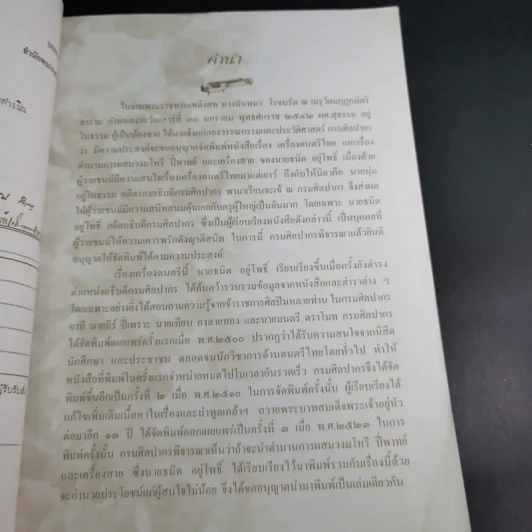 คำนำ
ในงานพระราชทานเพลิงศพ นางฉันทนา โรจนรัต ณ เมรุวัดมกุฏกษัตริ
ยาราม กำหนดงานวันเสาร์ที่ ๓๐ มกราคม พุทธศักราช ๒๕๔๒ ผศ.สุธรรม อยู่
ในธรรม ผู้เป็นน้องชาย ได้มาแจ้งแก่กองวรรณกรรมและประวัติศาสตร์ กรมศิลปากร
ว่า มีความประสงค์จะขออนุญาตจัดพิมพ์หนังสือเรื่อง เครื่องดนตรีไทย และเรื่อง
ตำนานการผสมวงมโหรี ปี่พาทย์ และเครื่องสาย ของนายธนิต อยู่โพธิ์ เนื่องด้วย
ผู้วายชนม์มีความสนใจเรื่องเครื่องดนตรีไทยมาแต่เยาว์ ถึงกับให้บิดาคือ นายบุ่น
อยู่ในธรรม อดีตรองอธิบดีกรมศิลปากร พามาเรียนจะเข้ ณ กรมศิลปากร จึงส่งผล
ให้ผู้วายชนม์มีความสนิทสนมคุ้นเคยกับครูผู้ใหญ่เป็นอันมาก โดยเฉพาะ นายธนิต
อยู่โพธิ์ อดีตอธิบดีกรมศิลปากร ซึ่งเป็นผู้เรียบเรียงหนังสือดังกล่าวนี้ เป็นบุคคลที่
ผู้วายชนม์ให้ความเคารพรักดังญาติสนิท ในการนี้ กรมศิลปากรพิจารณาแล้วยินดี
อนุญาตให้จัดพิมพ์ได้ตามความประสงค์
เรื่องเครื่องดนตรีนี้ นายธนิต อยู่โพธิ์ เรียบเรียงขึ้นเมื่อครั้งยังดำรง
ตำแหน่งอธิบดีกรมศิลปากร ได้ค้นคว้ารวบรวมข้อมูลจากหนังสือและตำราต่าง ๆ
โดยเฉพาะอย่างยิ่งได้สอบถามความรู้จากข้าราชการศิลปินหลายท่าน ในกรมศิลปากร
อาทิ นายถีร์ ปี่เพราะ นายเทียบ คงลายทอง และนายมนตรี ตราโมท กรมศิลปากร
ได้จัดพิมพ์เผยแพร่ครั้งแรกเมื่อ พ.ศ.๒๕๐๐ ปรากฏว่าได้รับความสนใจจากนิสิต
นักศึกษา และประชาชน ตลอดจนนักวิชาการด้านดนตรีไทยโดยทั่วไป ทำให้
หนังสือที่พิมพ์ในครั้งแรกจำหน่ายหมดไปในเวลาอันรวดเร็ว กรมศิลปากรจึงได้จัด
พิมพ์ขึ้นอีกเป็นครั้งที่ ๒ เมื่อ พ.ศ.๒๕๑๐ ในการจัดพิมพ์ครั้งนั้น ผู้เรียบเรียงได้
แก้ไขเพิ่มเติมเนื้อหาในเรื่องและนำทูลเกล้าฯ ถวายพระบาทสมเด็จพระเจ้าอยู่หัว
ต่อมาอีก ๑๓ ปี ได้จัดพิมพ์ออกเผยแพร่เป็นครั้งที่ ๓ เมื่อ พ.ศ.๒๕๒๓ ในการ
พิมพ์ครั้งนั้น กรมศิลปากรพิจารณาเห็นว่าถ้าจะนำตำนานการผสมวงมโหรี ปี่พาทย์
และเครื่องสาย ซึ่งนายธนิต อยู่โพธิ์ ได้เรียบเรียงไว้มาพิมพ์รวมกับเรื่องนี้ด้วย
จะอำนวยประโยชน์แก่ผู้สนใจไม่น้อย จึงได้ขออนุญาตนำมาพิมพ์เป็นเล่มเดียวกัน